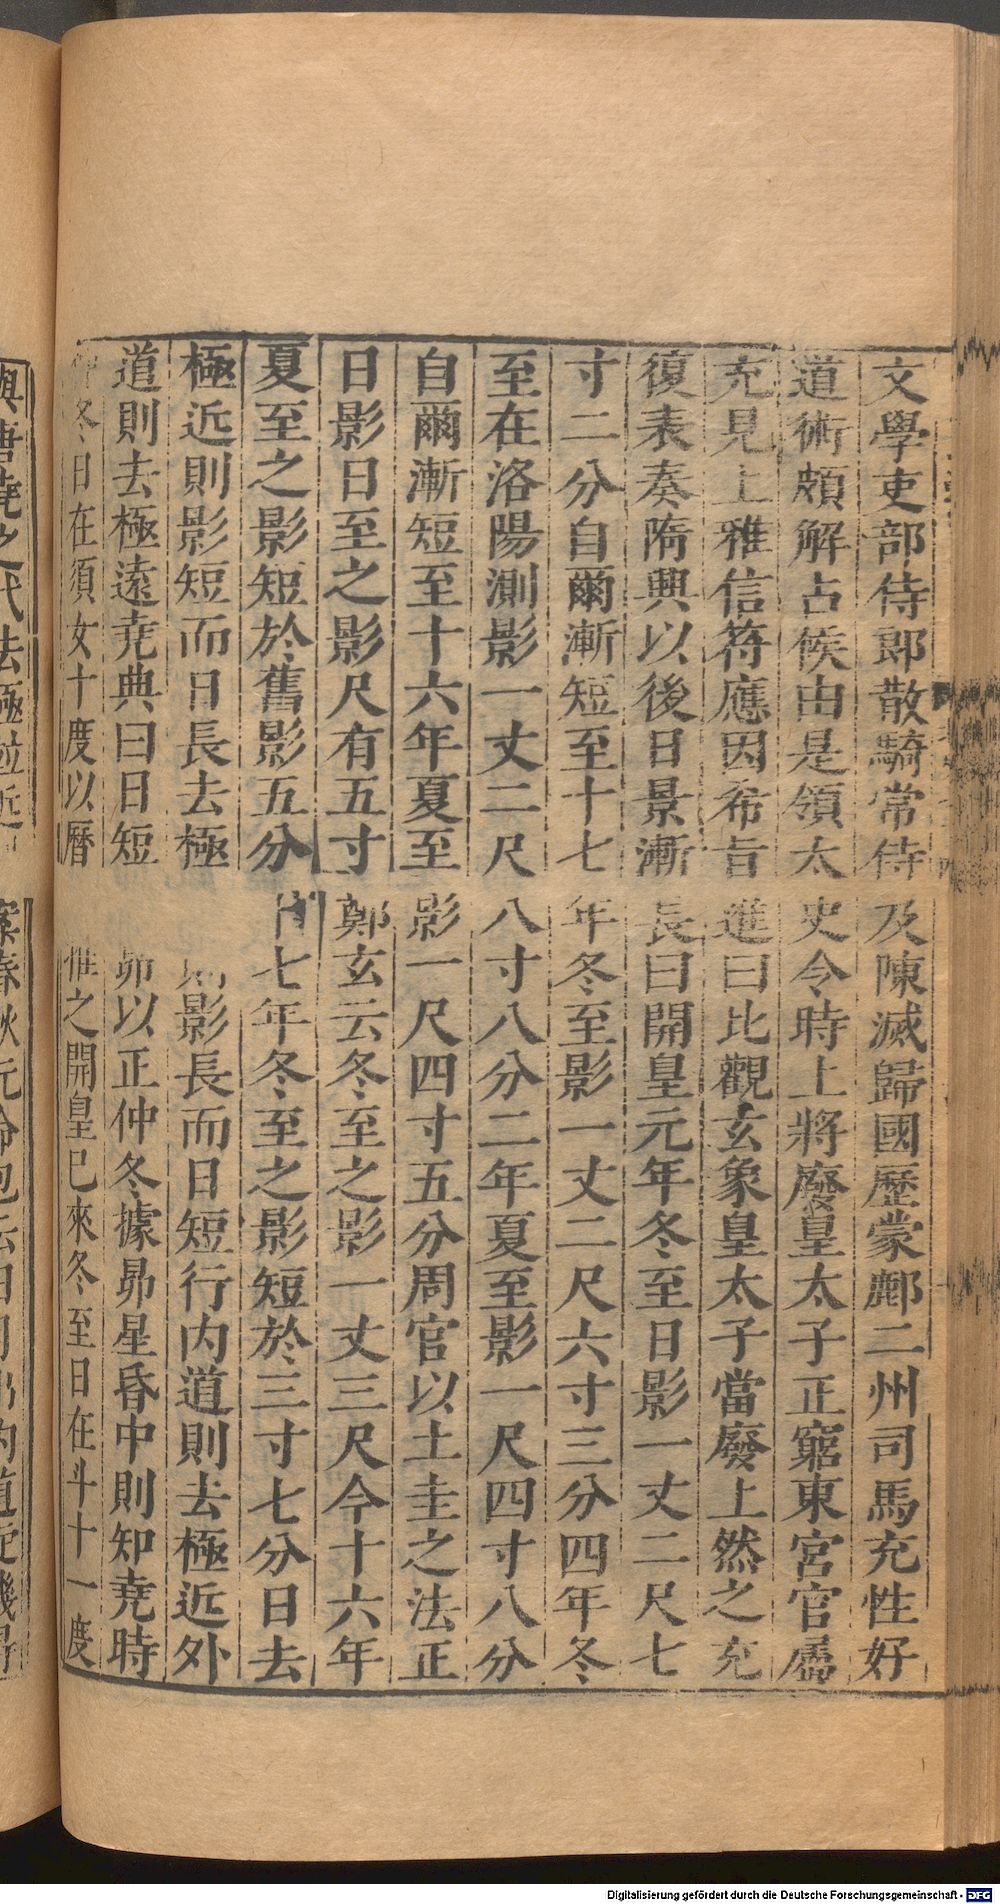 文學吏部侍郎散騎常侍及陳滅歸國歷蒙鄜二州司馬充性好
道術頗解占候由是領太史令時上將廢皇太子正窮東宮官屬
充見上雅信符應因希旨進曰比觀玄象皇太子當廢上然之充
復表奏隋興以後日景漸長曰開皇元年冬至日影一丈二尺七
寸二分自爾漸短至十七年冬至影一丈二尺六寸三分四年冬
至在洛陽測影一丈二尺八寸八分二年夏至影一尺四寸八分
自爾漸短至十六年夏至影一尺四寸五分周官以土圭之法正
日影日至之影尺有五寸鄭玄云冬至之影一丈三尺今十六年
夏至之影短於舊影五分十七年冬至之影短於三寸七分日去
極近則影短而日長去極則影長而日短行内道則去極近外
道則去極遠堯典曰日短昴以正仲冬據昴星昏中則知堯時
仲冬日在須女十度以曆推之開皇已來冬至日在斗十一度
與唐堯之代去極並近 案春秋元命包云日月出内道璇璣得
Digitalisierung gefördert durch die Deutsche Forschungsgemeinschaft - DFG